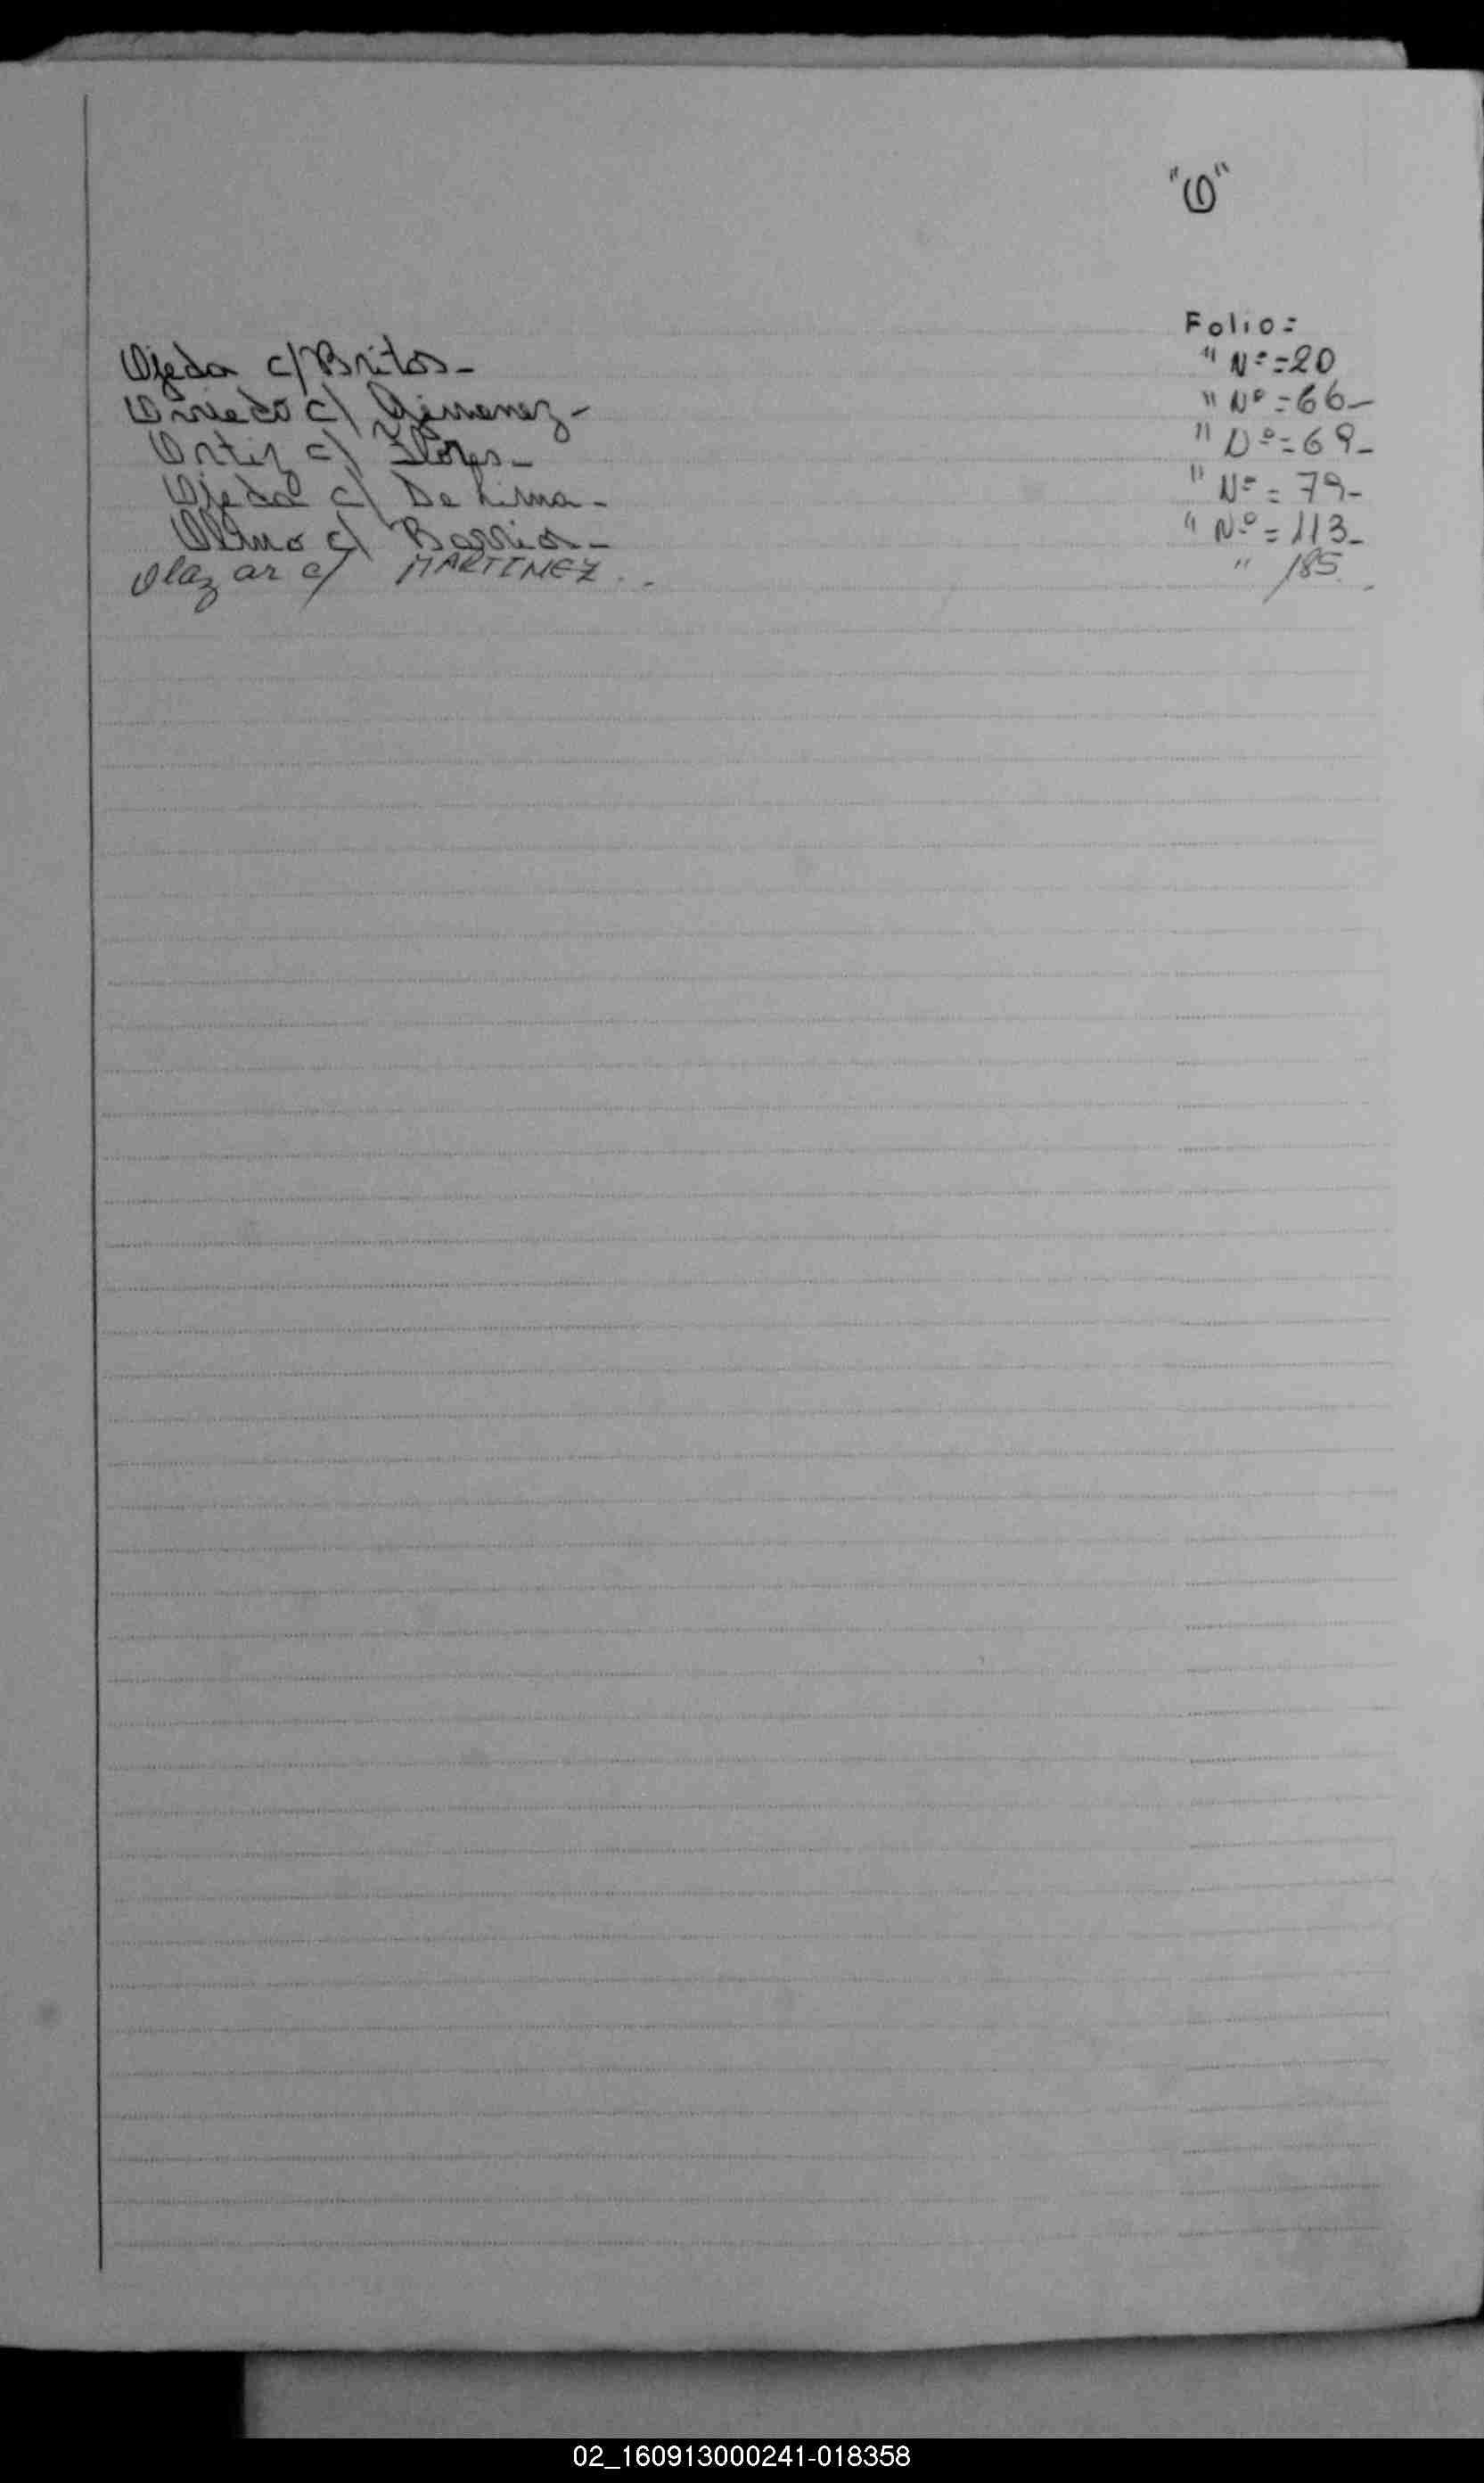 "O"
Folio=
Ojeda c/ Britos- " Nº=20
Oviedo c/ Gimenez- " Nº=66-
Ortiz c/ Flores- " Nº=69-
Ojeda c/ De Lima- " Nº=79-
c/ Barrios- " Nº=113-
Olazar c/ MARTINEZ.. " 185.
02_160913000241-018358